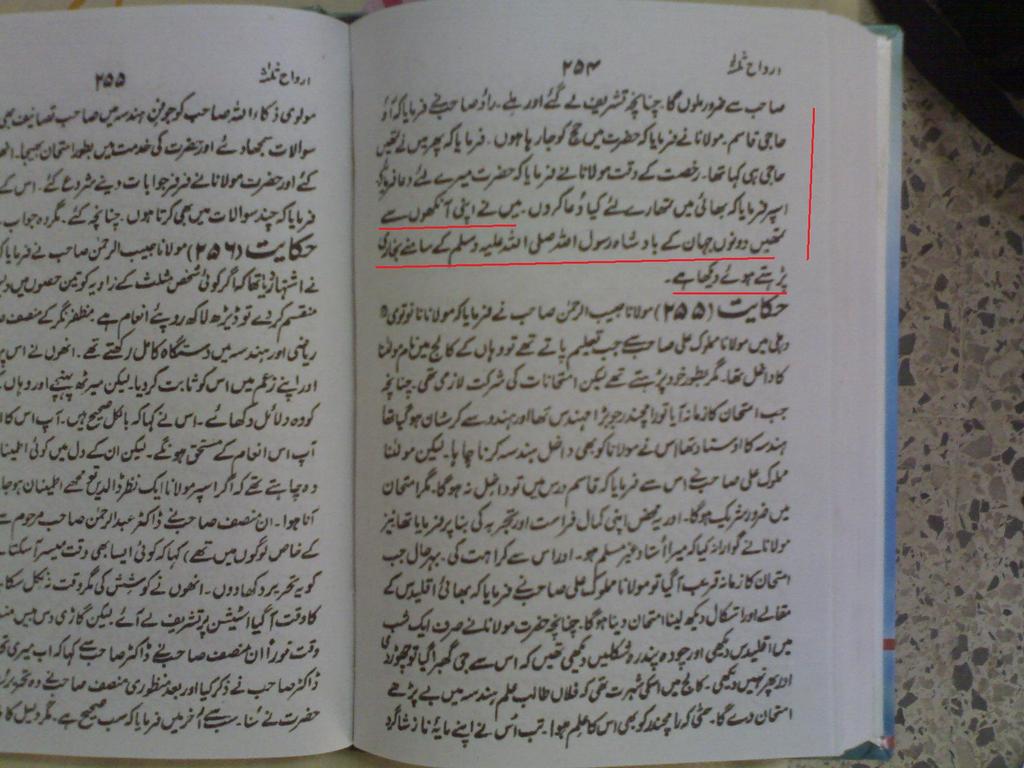 ارواح ثلٰثہ
۲۵۴
صاحب سے ضرور ملوں گا۔ چنانچہ تشریف لے گئے اور ملے۔ راؤ صاحب نے فرمایا کہ آؤ
حاجی قاسم۔ مولانا نے فرمایا کہ حضرت میں حج کو جارہا ہوں۔ فرمایا کہ پھر میں نے تمھیں
حاجی ہی کہا تھا۔ رخصت کے وقت مولانا نے فرمایا کہ حضرت میرے لئے دعا فرمائے
اسپر فرمایا کہ بھائی میں تمھارے لئے کیا دُعا کروں۔ میں نے اپنی آنکھوں سے
تمھیں دونوں جہان کے بادشاہ رسول اللہ صلی اللہ علیہ وسلم کے سامنے بخاری
پڑہتے ہوئے دیکھا ہے۔
حکایت (۲۵۵) مولانا حبیب الرحمٰن صاحب نے فرمایا کہ مولانا نانوتوی
دہلی میں مولانا مملوک علی صاحب سے جب تعلیم پاتے تھے تو وہاں کے کالج میں نام مولٰنا
کا داخل تھا۔ مگر بطور خود پڑہتے تھے لیکن امتحانات کی شرکت لازمی تھی۔ چنانچہ
جب امتحان کا زمانہ آیا تو رامچندر جو بڑا مہندس تھا اور ہندو سے کرسٹان ہو گیا تھا
ہندسہ کا اوستاد تھا اس نے مولانا کو بھی داخل ہندسہ کرنا چاہا۔ لیکن مولٰنا
مملوک علی صاحب نے اس سے فرمایا کہ قاسم درس میں تو داخل نہ ہوگا۔ مگر امتحان
میں ضرور شریک ہوگا۔ اور یہ محض اپنی کمال فراست اور تجربہ کی بنا پر فرمایا تھا نیز
مولانا نے گوارا نہ کیا کہ میرا اُستاد غیر مسلم ہو۔ اور اس سے کراہت کی۔ بہرحال جب
امتحان کا زمانہ قریب آگیا تو مولانا مملوک علی صاحب نے فرمایا کہ بھائی اُقلیدس کے
مقالے اور اشکال دیکھ لینا امتحان دینا ہوگا۔ چنانچہ حضرت مولانا نے صرف ایک شب
میں اقلیدس دیکھی اور چودہ پندرہ شکلیں دیکھی تھیں کہ اس سے جی گھبرا گیا تو چھوڑ دی
اور پھر نہیں دیکھی۔ کالج میں اسکی شہرت تھی کہ فلاں طالب علم ہندسہ میں بے پڑھے
امتحان دے گا۔ حتٰی کہ رامچند کو بھی اس کا علم ہوا۔ تب اُس نے اپنے مایۂ ناز شاگرد
ارواح ثلٰثہ
۲۵۵
مولوی ذکاء اللہ صاحب کو جو فنِ ہندسہ میں صاحب تصانیف بھی
سوالات سمجھادئے اور حضرت کی خدمت میں بطور امتحان بھیجا۔
گئے اور حضرت مولانا نے فرفر جوابات دینے شروع کئے۔ اس کے
فرمایا کہ چند سوالات میں بھی کرتا ہوں۔ چنانچہ کئے۔ مگر وہ جواب
حکایت (۲۵۶) مولانا حبیب الرحمٰن صاحب نے فرمایا
نے اشتہار دیا تھا کہ اگر کوئی شخص مثلث کے زاویہ کو تین حصوں میں
منقسم کردے تو ڈیڑھ لاکھ روپئے انعام ہے۔ مظفر نگر کے منصف
ریاضی اور ہندسہ میں دستگاہ کامل رکھتے تھے۔ انھوں نے اس پر
اور اپنے زعم میں اس کو ثابت کردیا۔ لیکن میرٹھ پہنچے اور وہاں
کو دہ دلائل دکھائے۔ اس نے کہا کہ بالکل صحیح ہیں۔ آپ اس کا
آپ اس انعام کے مستحق ہونگے۔ لیکن ان کے دل میں کوئی اطمینا
وہ چاہتے تھے کہ اگر اسپر مولانا ایک نظر ڈالدیں تو مجھے اطمینان ہوجا
آنا ہوا۔ ان منصف صاحب نے ڈاکٹر عبدالرحمٰن صاحب مرحوم سے
کے خاص لوگوں میں تھے) کہا کہ کوئی ایسا بھی وقت میسر آسکتا
کو یہ تحریر دکھادوں۔ انھوں نے کوشش کی مگر وقت نہ نکل سکا
کا وقت آگیا اسٹیشن پر تشریف لے آئے۔ لیکن گاڑی دس بیس
وقت فوراً ان منصف صاحب نے ڈاکٹر صاحب سے کہا کہ اب میری
ڈاکٹر صاحب نے ذکر کیا اور بعد منظوری منصف صاحب نے وہ تحریر
حضرت نے سُنا۔ سب سے آخر میں فرمایا کہ سب صحیح ہے۔ مگر دلیل کا